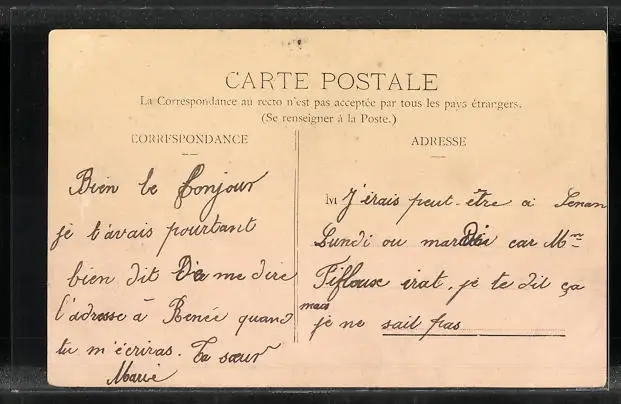 CARTE POSTALE
La Correspondance au recto n'est pas acceptée par tous les pays étrangers.
(Se renseigner à la Poste.)
CORRESPONDANCE
Bien le bonjour
je t'avais pourtant
bien dit De me dire
l'adresse à Renée quand
tu m'écriras. Ta sœur
Marie
ADRESSE
M J'irais peut-être à Senan
Lundi ou marDi car Mme
irat. je te dit ça
mais
je ne sait pas